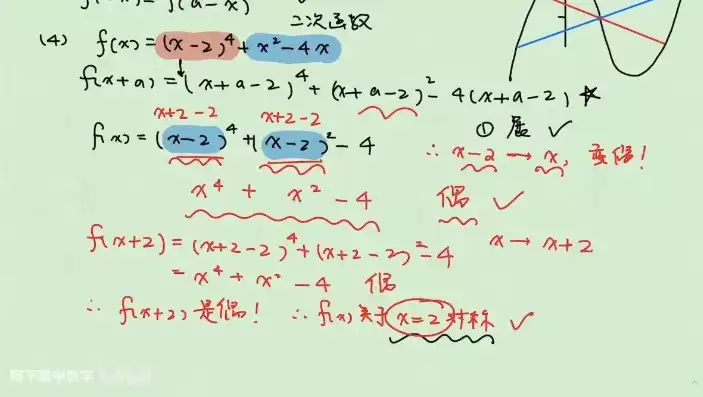 f(a-x)
二次函数
(4) f(x)=(x-2)⁴+x²-4x
f(x+a)=(x+a-2)⁴+(x+a-2)²-4(x+a-2)
① 展 ✓
x+2-2 x+2-2
f(x)=(x-2)⁴+(x-2)²-4
∴ x-2→x, 变偶!
x⁴+x²-4 偶 ✓
f(x+2)=(x+2-2)⁴+(x+2-2)²-4 x→x+2
=x⁴+x²-4 偶
∴ f(x+2)是偶! ∴ f(x)关于x=2对称 ✓